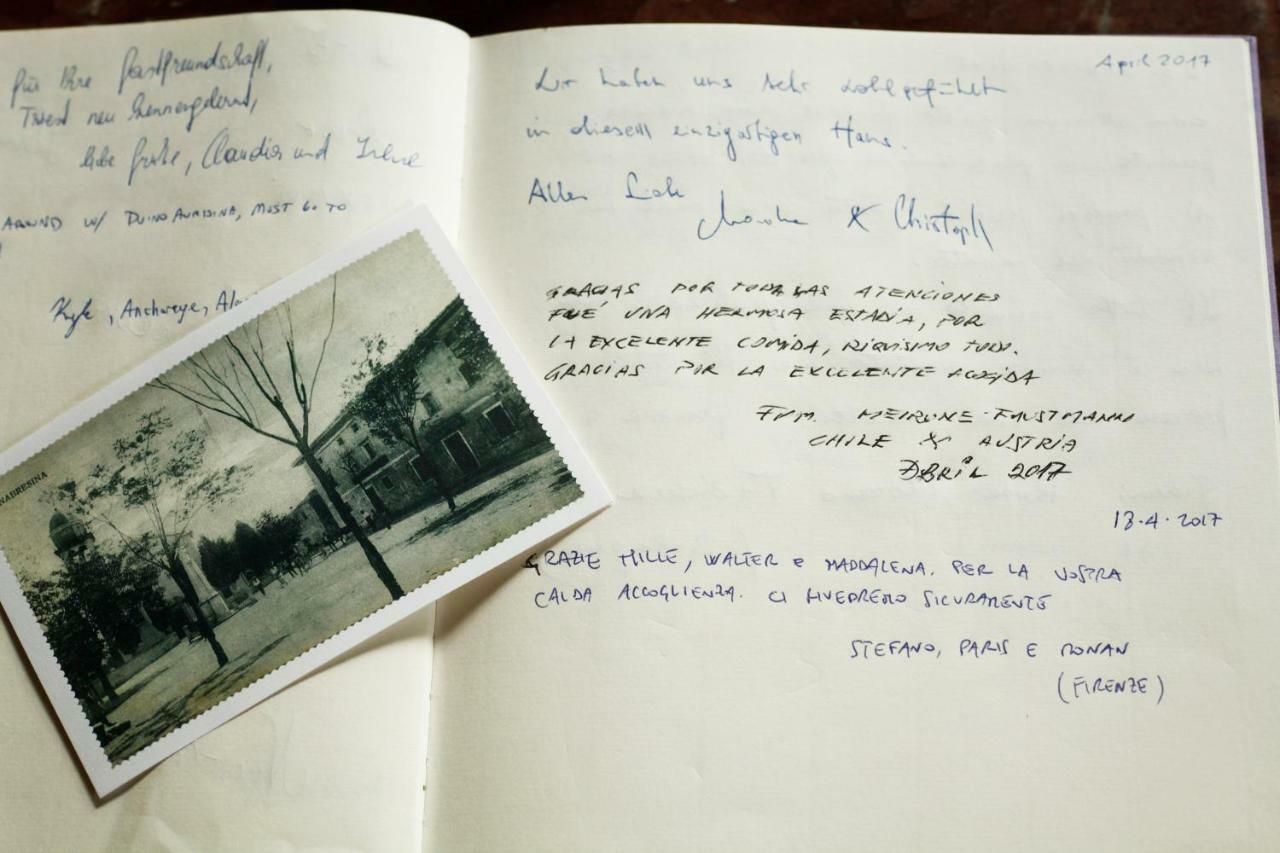 für Ihre Gastfreundschaft,
Triest neu
liebe Grüße, Claudia und Irene
AROUND W/ DUINO AURISINA, MUST GO TO
Kyle,
NABRESINA
April 2017
Wir haben uns sehr wohlgefühlt
in diesem einzigartigen Haus.
Alles Liebe
& Christoph
GRACIAS POR TODAS LAS ATENCIONES
FUÉ UNA HERMOSA ESTADIA, POR
LA EXCELENTE COMIDA, RIQUISIMO TODO.
GRACIAS POR LA EXCELENTE ACOGIDA
FAM. FAUSTMANN
CHILE & AUSTRIA
ABRIL 2017
18.4.2017
GRAZIE MILLE, WALTER E MADDALENA. PER LA VOSTRA
CALDA ACCOGLIENZA. CI RIVEDREMO SICURAMENTE
STEFANO, PARIS E RONAN
(FIRENZE)